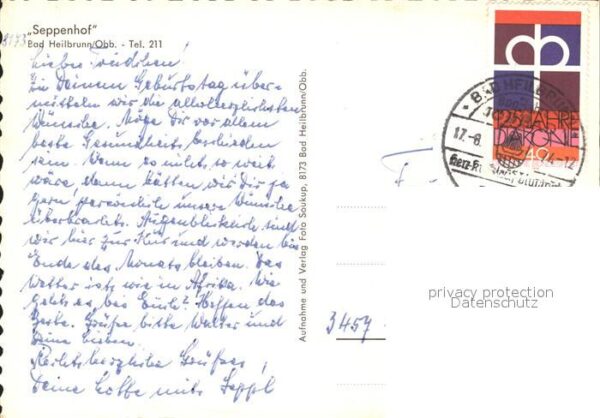 „Seppenhof"
Bad Heilbrunn/Obb. - Tel. 211
8173
Zu Deinem Geburtstag über-
mitteln wir die allerherzlichsten
Wünsche. Möge Dir vor allem
beste Gesundheit beschieden
sein. Wenn es nicht so weit
wäre, dann hätten wir Dir ja
gern persönlich unsere Wünsche
überbracht. Augenblicklich sind
wir hier zur Kur und werden bis
Ende des Monats bleiben. Das
Wetter ist wie in Afrika. Wie
geht es bei Euch? Hoffen das
Beste. Grüße bitte Walter und
Deine Lieben.
Recht herzliche Grüße,
Deine Lotte mit Seppl
Aufnahme und Verlag Foto Soukup, 8173 Bad Heilbrunn/Obb.
BAD HEILBRUNN
125 JAHRE
DIAKONIE
17.-8.
-12
3457
privacy protection
Datenschutz